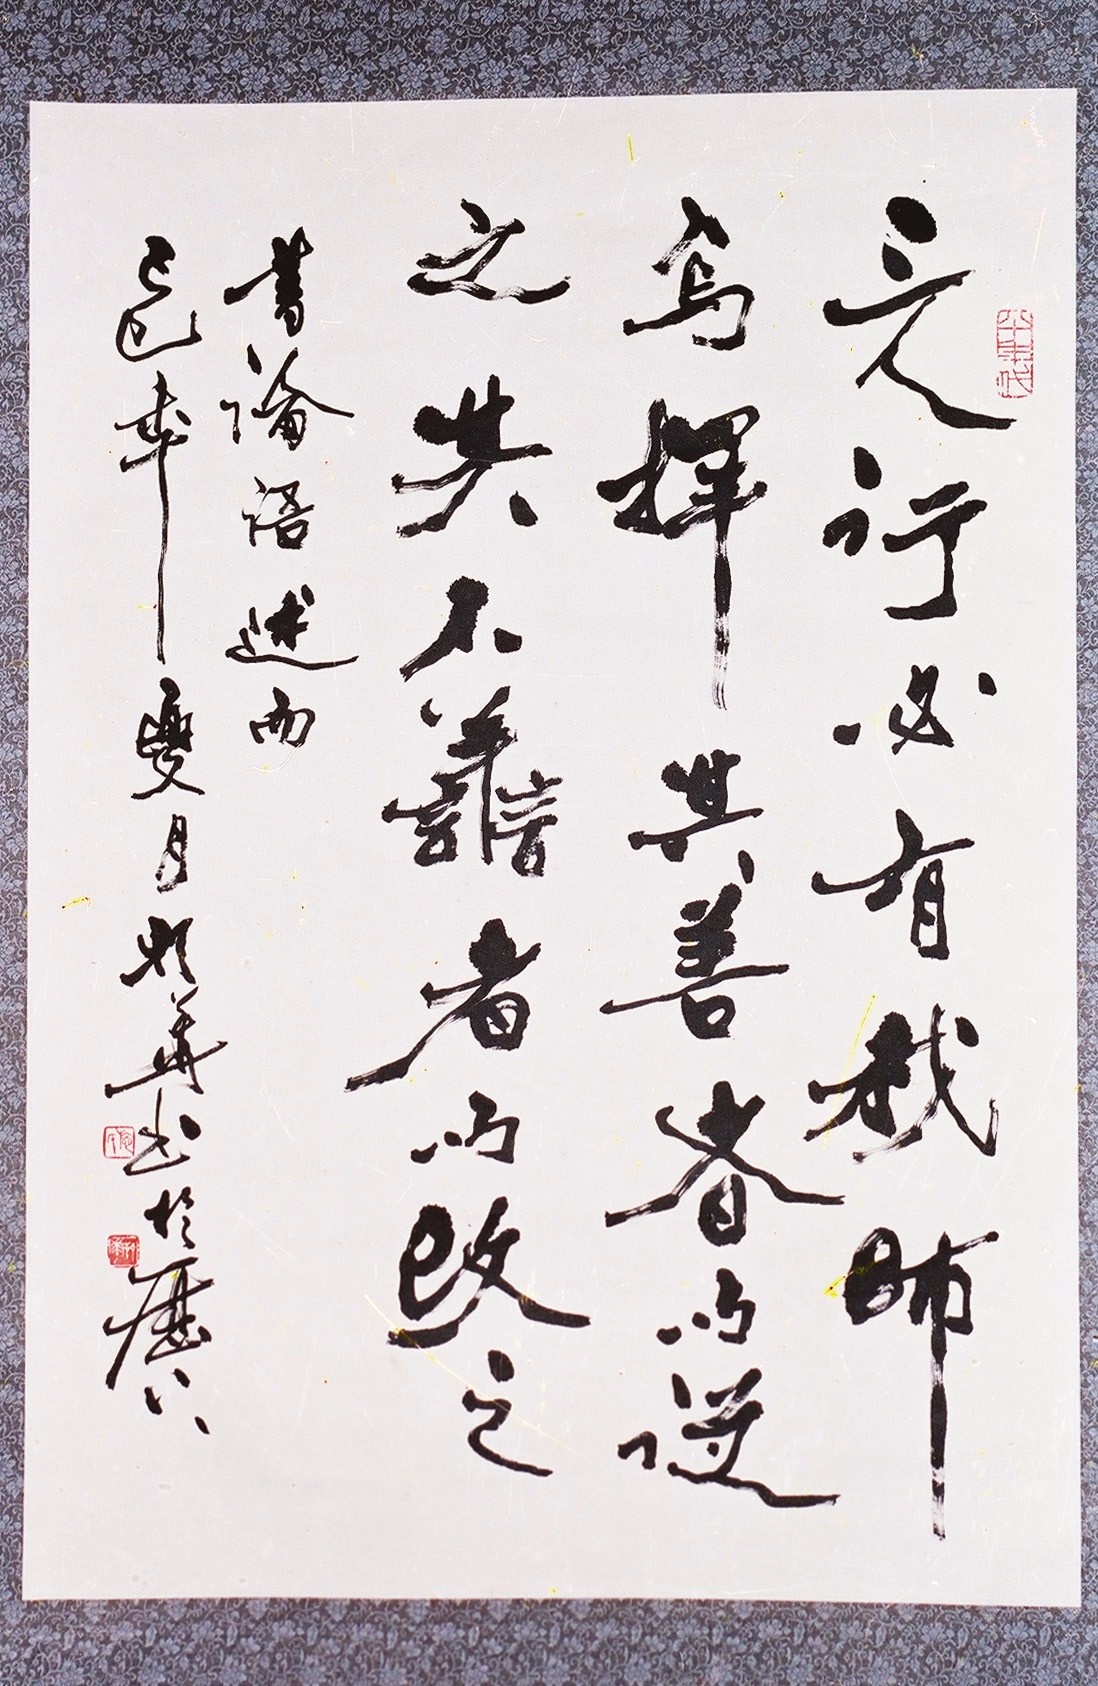 三人行必有我師
焉擇其善者而從
之其不善者而改之
書論語述而
己巳年夏月
書於